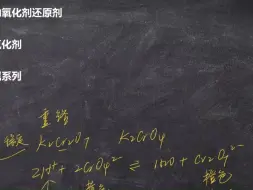 的氧化剂还原剂
氧化剂
系列
重铬
K2Cr2O7 K2CrO4
2H+ + 2CrO4^2- ⇌ H2O + Cr2O7^2-
黄色 橙色